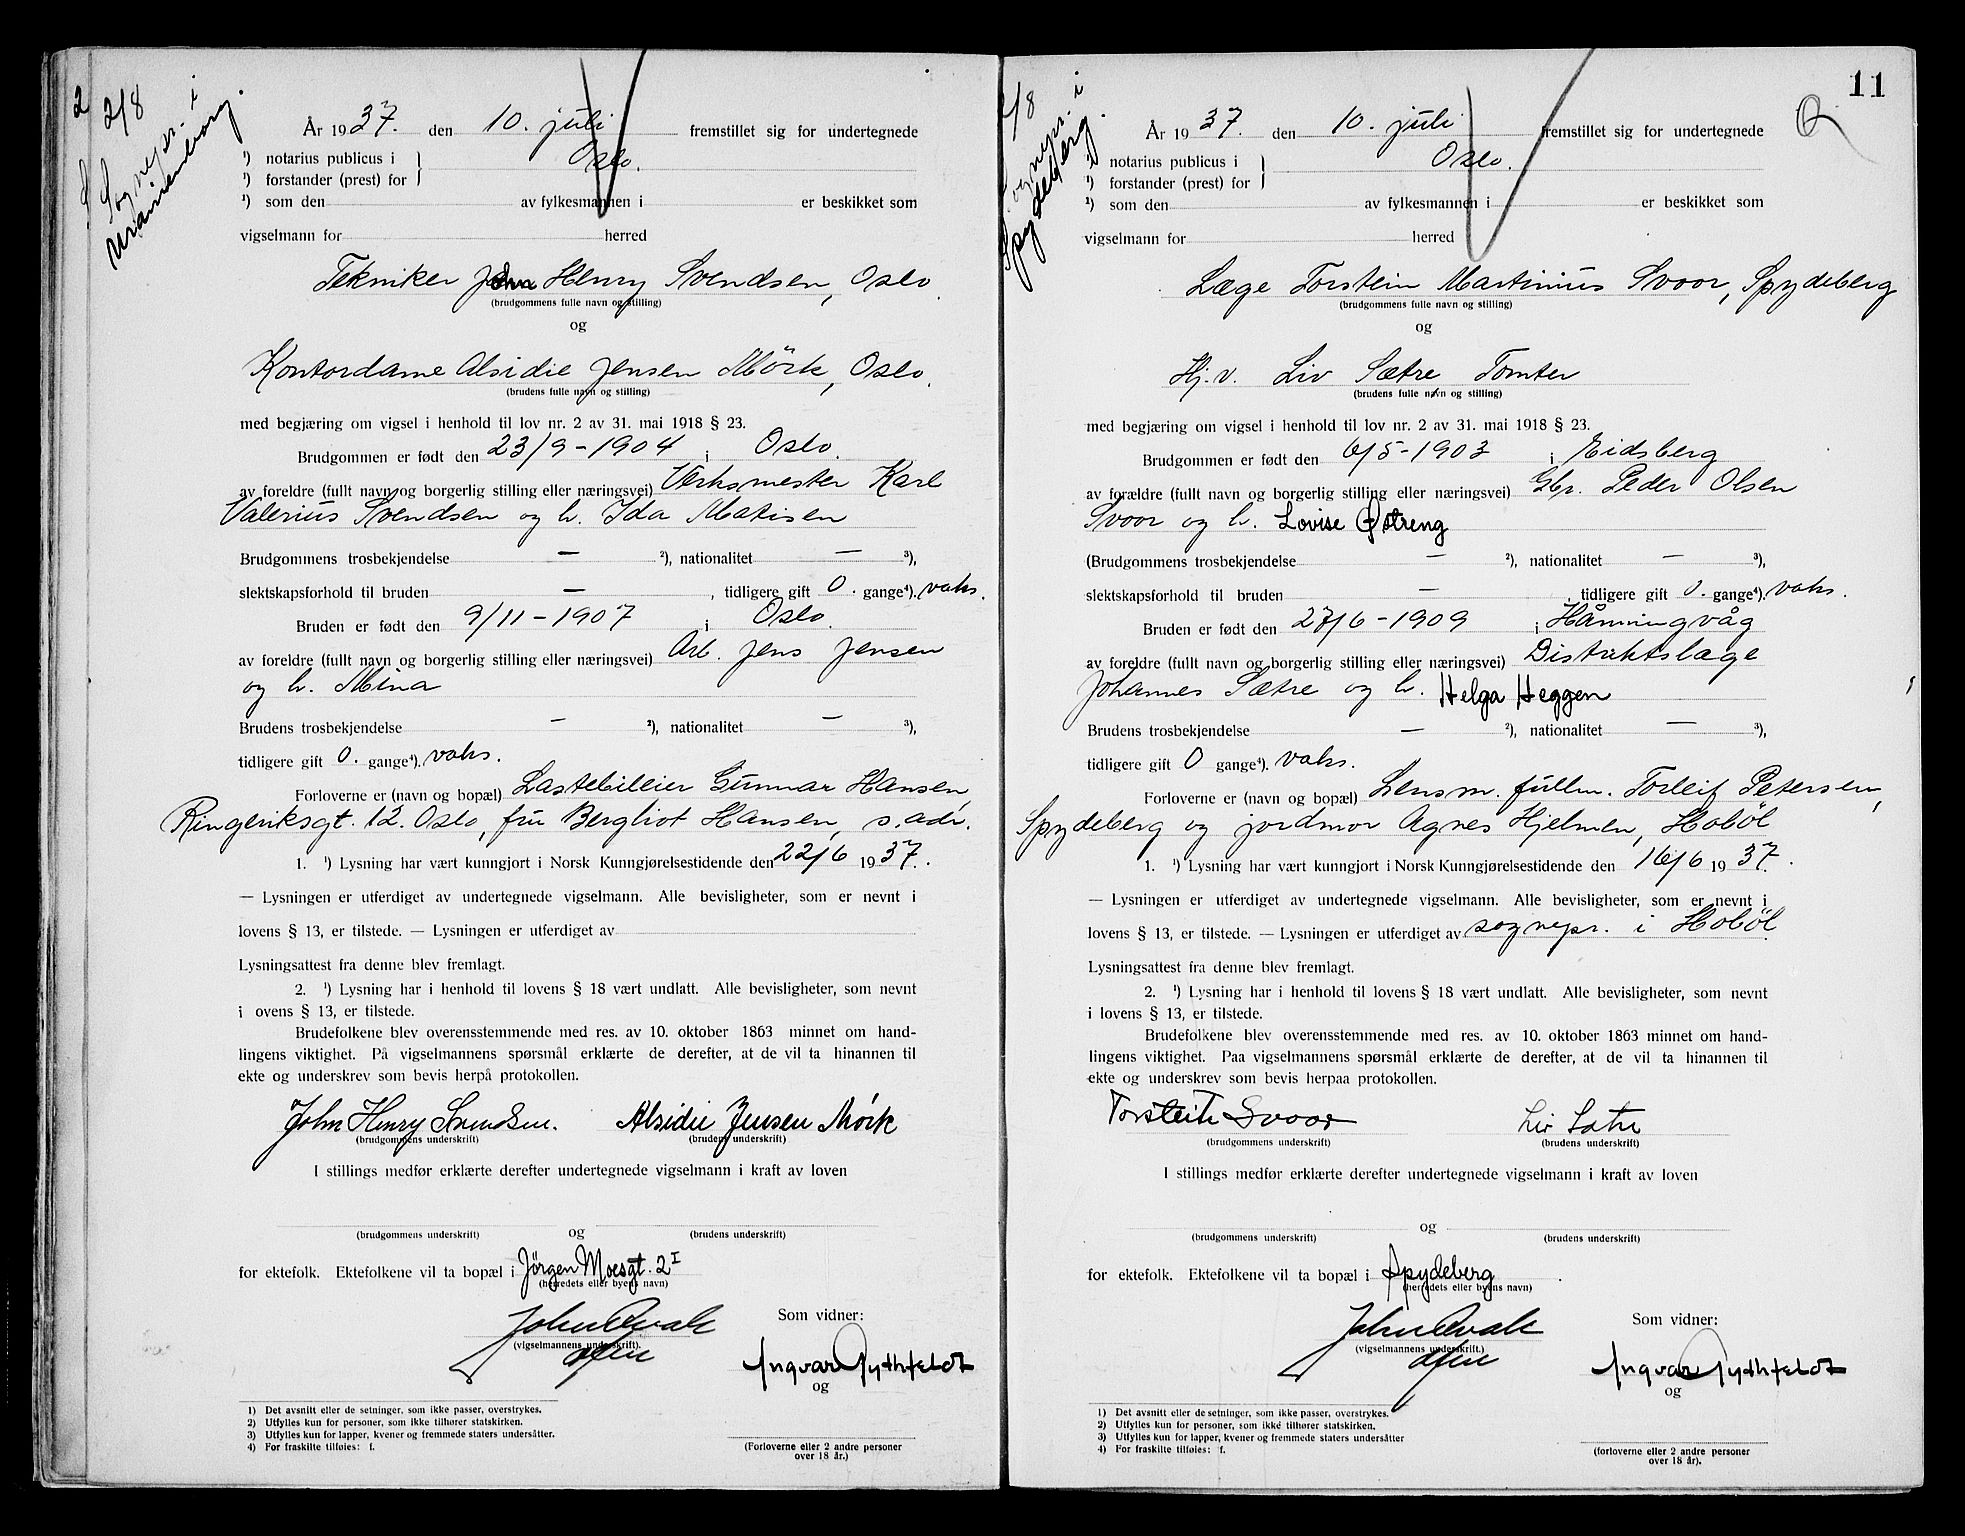 2
2/8
Sognepr. i
Uranienborg.
År 1937. den 10. juli fremstillet sig for undertegnede
¹) notarius publicus i } Oslo.
¹) forstander (prest) for }
¹) som den av fylkesmannen i er beskikket som
vigselmann for herred
Tekniker John Henry Svendsen, Oslo.
(brudgommens fulle navn og stilling)
og
Kontordame Alsidie Jensen Mörk, Oslo.
(brudens fulle navn og stilling)
med begjæring om vigsel i henhold til lov nr. 2 av 31. mai 1918 § 23.
Brudgommen er født den 23/9-1904 i Oslo.
av foreldre (fullt navn og borgerlig stilling eller næringsvei) Verksmester Karl
Valerius Svendsen og h. Ida Matisen
Brudgommens trosbekjendelse — ²), nationalitet — ³),
slektskapsforhold til bruden — , tidligere gift 0. gange⁴). vahs.
Bruden er født den 9/11-1907 i Oslo.
av foreldre (fullt navn og borgerlig stilling eller næringsvei) Arb. Jens Jensen
og h. Mina
Brudens trosbekjendelse — ²), nationalitet — ³),
tidligere gift 0. gange⁴). vahs.
Forloverne er (navn og bopæl) Lastebileier Gunnar Hansen,
Ringeriksgt. 12. Oslo, fru Bergliot Hansen, s. adr.
1. ¹) Lysning har vært kunngjort i Norsk Kunngjørelsestidende den 22/6 1937.
— Lysningen er utferdiget av undertegnede vigselmann. Alle bevisligheter, som er nevnt i
lovens § 13, er tilstede. — Lysningen er utferdiget av
Lysningsattest fra denne blev fremlagt.
2. ¹) Lysning har i henhold til lovens § 18 vært undlatt. Alle bevisligheter, som nevnt
i ovens § 13, er tilstede.
Brudefolkene blev overensstemmende med res. av 10. oktober 1863 minnet om hand-
lingens viktighet. På vigselmannens spørsmål erklærte de derefter, at de vil ta hinannen til
ekte og underskrev som bevis herpå protokollen.
John Henry Svendsen. Alsidie Jensen Mörk
(brudgommens underskrift) (brudens underskrift)
I stillings medfør erklærte derefter undertegnede vigselmann i kraft av loven
og
(brudgommens underskrift) (brudens underskrift)
for ektefolk. Ektefolkene vil ta bopæl i Jörgen Moesgt. 2 I
(herredets eller byens navn)
John Qvale
(vigselmannens underskrift).
Som vidner:
Ingvar Gythfeldt
og
1) Det avsnitt eller de setninger, som ikke passer, overstrykes.
2) Utfylles kun for personer, som ikke tilhører statskirken.
3) Utfylles kun for lapper, kvener og fremmede staters undersåtter.
4) For fraskilte tilføies: f.
(Forloverne eller 2 andre personer
over 18 år.)
11
2/8
Sognepr. i
Spydeberg.
År 1937. den 10. juli fremstillet sig for undertegnede
¹) notarius publicus i } Oslo.
¹) forstander (prest) for }
²) som den av fylkesmannen i er beskikket som
vigselmann for herred
Læge Torstein Martinius Svoor, Spydeberg
(brudgommens fulle navn og stilling)
og
Hj.v. Liv Sætre Tomter
(brudens fulle navn og stilling)
med begjæring om vigsel i henhold til lov nr. 2 av 31. mai 1918 § 23.
Brudgommen er født den 6/5-1903 i Eidsberg
av forældre (fullt navn og borgerlig stilling eller næringsvei) Gbr. Peder Olsen
Svoor og h. Lovise Østreng
(Brudgommens trosbekjendelse — ²), nationalitet — ³),
slektskapsforhold til bruden — , tidligere gift 0. gange⁴). vahs.
Bruden er født den 27/6-1909 i Hånningvåg
av foreldre (fullt navn og borgerlig stilling eller næringsvei) Distriktslæge
Johannes Sætre og h. Helga Heggen
Brudens trosbekjendelse — ²), nationalitet — ³),
tidligere gift 0 gange⁴). vahs.
Forloverne er (navn og bopæl) Lensm. fullm. Torleif Petersen,
Spydeberg og jordmor Agnes Hjelmen, Hoböl
1. ¹) Lysning har vært kunngjort i Norsk Kunngjørelsestidende den 16/6 1937.
— Lysningen er utferdiget av undertegnede vigselmann. Alle bevisligheter, som er nevnt i
lovens § 13, er tilstede. — Lysningen er utferdiget av sognepr. i Hoböl.
Lysningsattest fra denne blev fremlagt.
2. ¹) Lysning har i henhold til lovens § 18 vært undlatt. Alle bevisligheter, som nevnt
i lovens § 13, er tilstede.
Brudefolkene blev overensstemmende med res. av 10. oktober 1863 minnet om hand-
lingens viktighet. Paa vigselmannens spørsmål erklærte de derefter, at de vil ta hinannen til
ekte og underskrev som bevis herpaa protokollen.
Torstein Svoor Liv Sætre
(brudgommens underskrift) (brudens underskrift)
I stillings medfør erklærte derefter undertegnede vigselmann i kraft av loven
og
(brudgommens underskrift) (brudens underskrift)
for ektefolk. Ektefolkene vil ta bopæl i Spydeberg.
(herredets eller byens navn)
John Qvale
(vigselmannens underskrift.)
Som vidner:
Ingvar Gythfeldt
og
1) Det avsnitt eller de setninger, som ikke passer, overstrykes.
2) Utfylles kun for personer, som ikke tilhører statskirken.
3) Utfylles kun for lapper, kvener og fremmede staters undersåtter
4) For fraskilte tilføies: f.
(forloverne eller 2 andre personer
over 18 år).